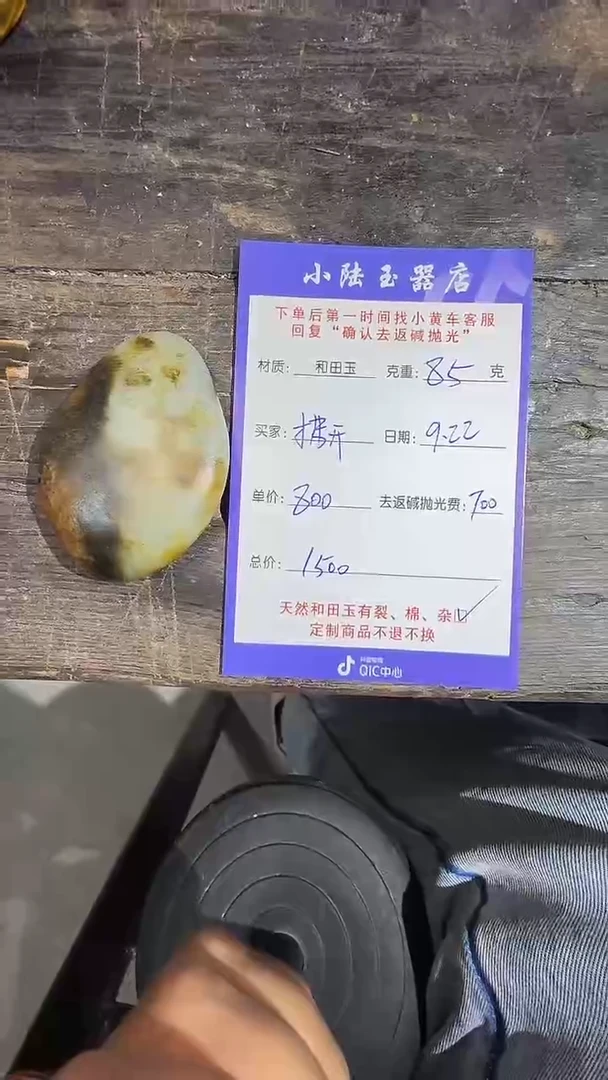 小陆玉器店
下单后第一时间找小黄车客服
回复“确认去返碱抛光”
材质: 和田玉 克重: 85 克
买家: 拂开 日期: 9.22
单价: 800 去返碱抛光费: 700
总价: 1500
天然和田玉有裂、棉、杂
定制商品不退不换
QIC中心